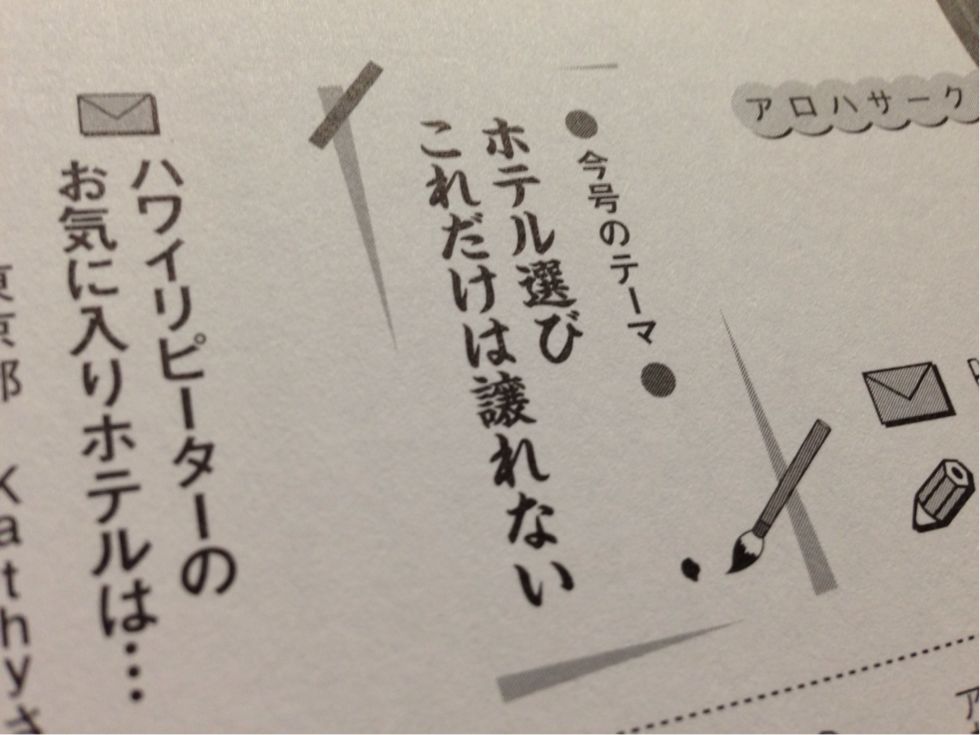 アロハサーク
今号のテーマ
ホテル選び
これだけは譲れない
ハワイリピーターの
お気に入りホテルは…
東京都 Kathyさ